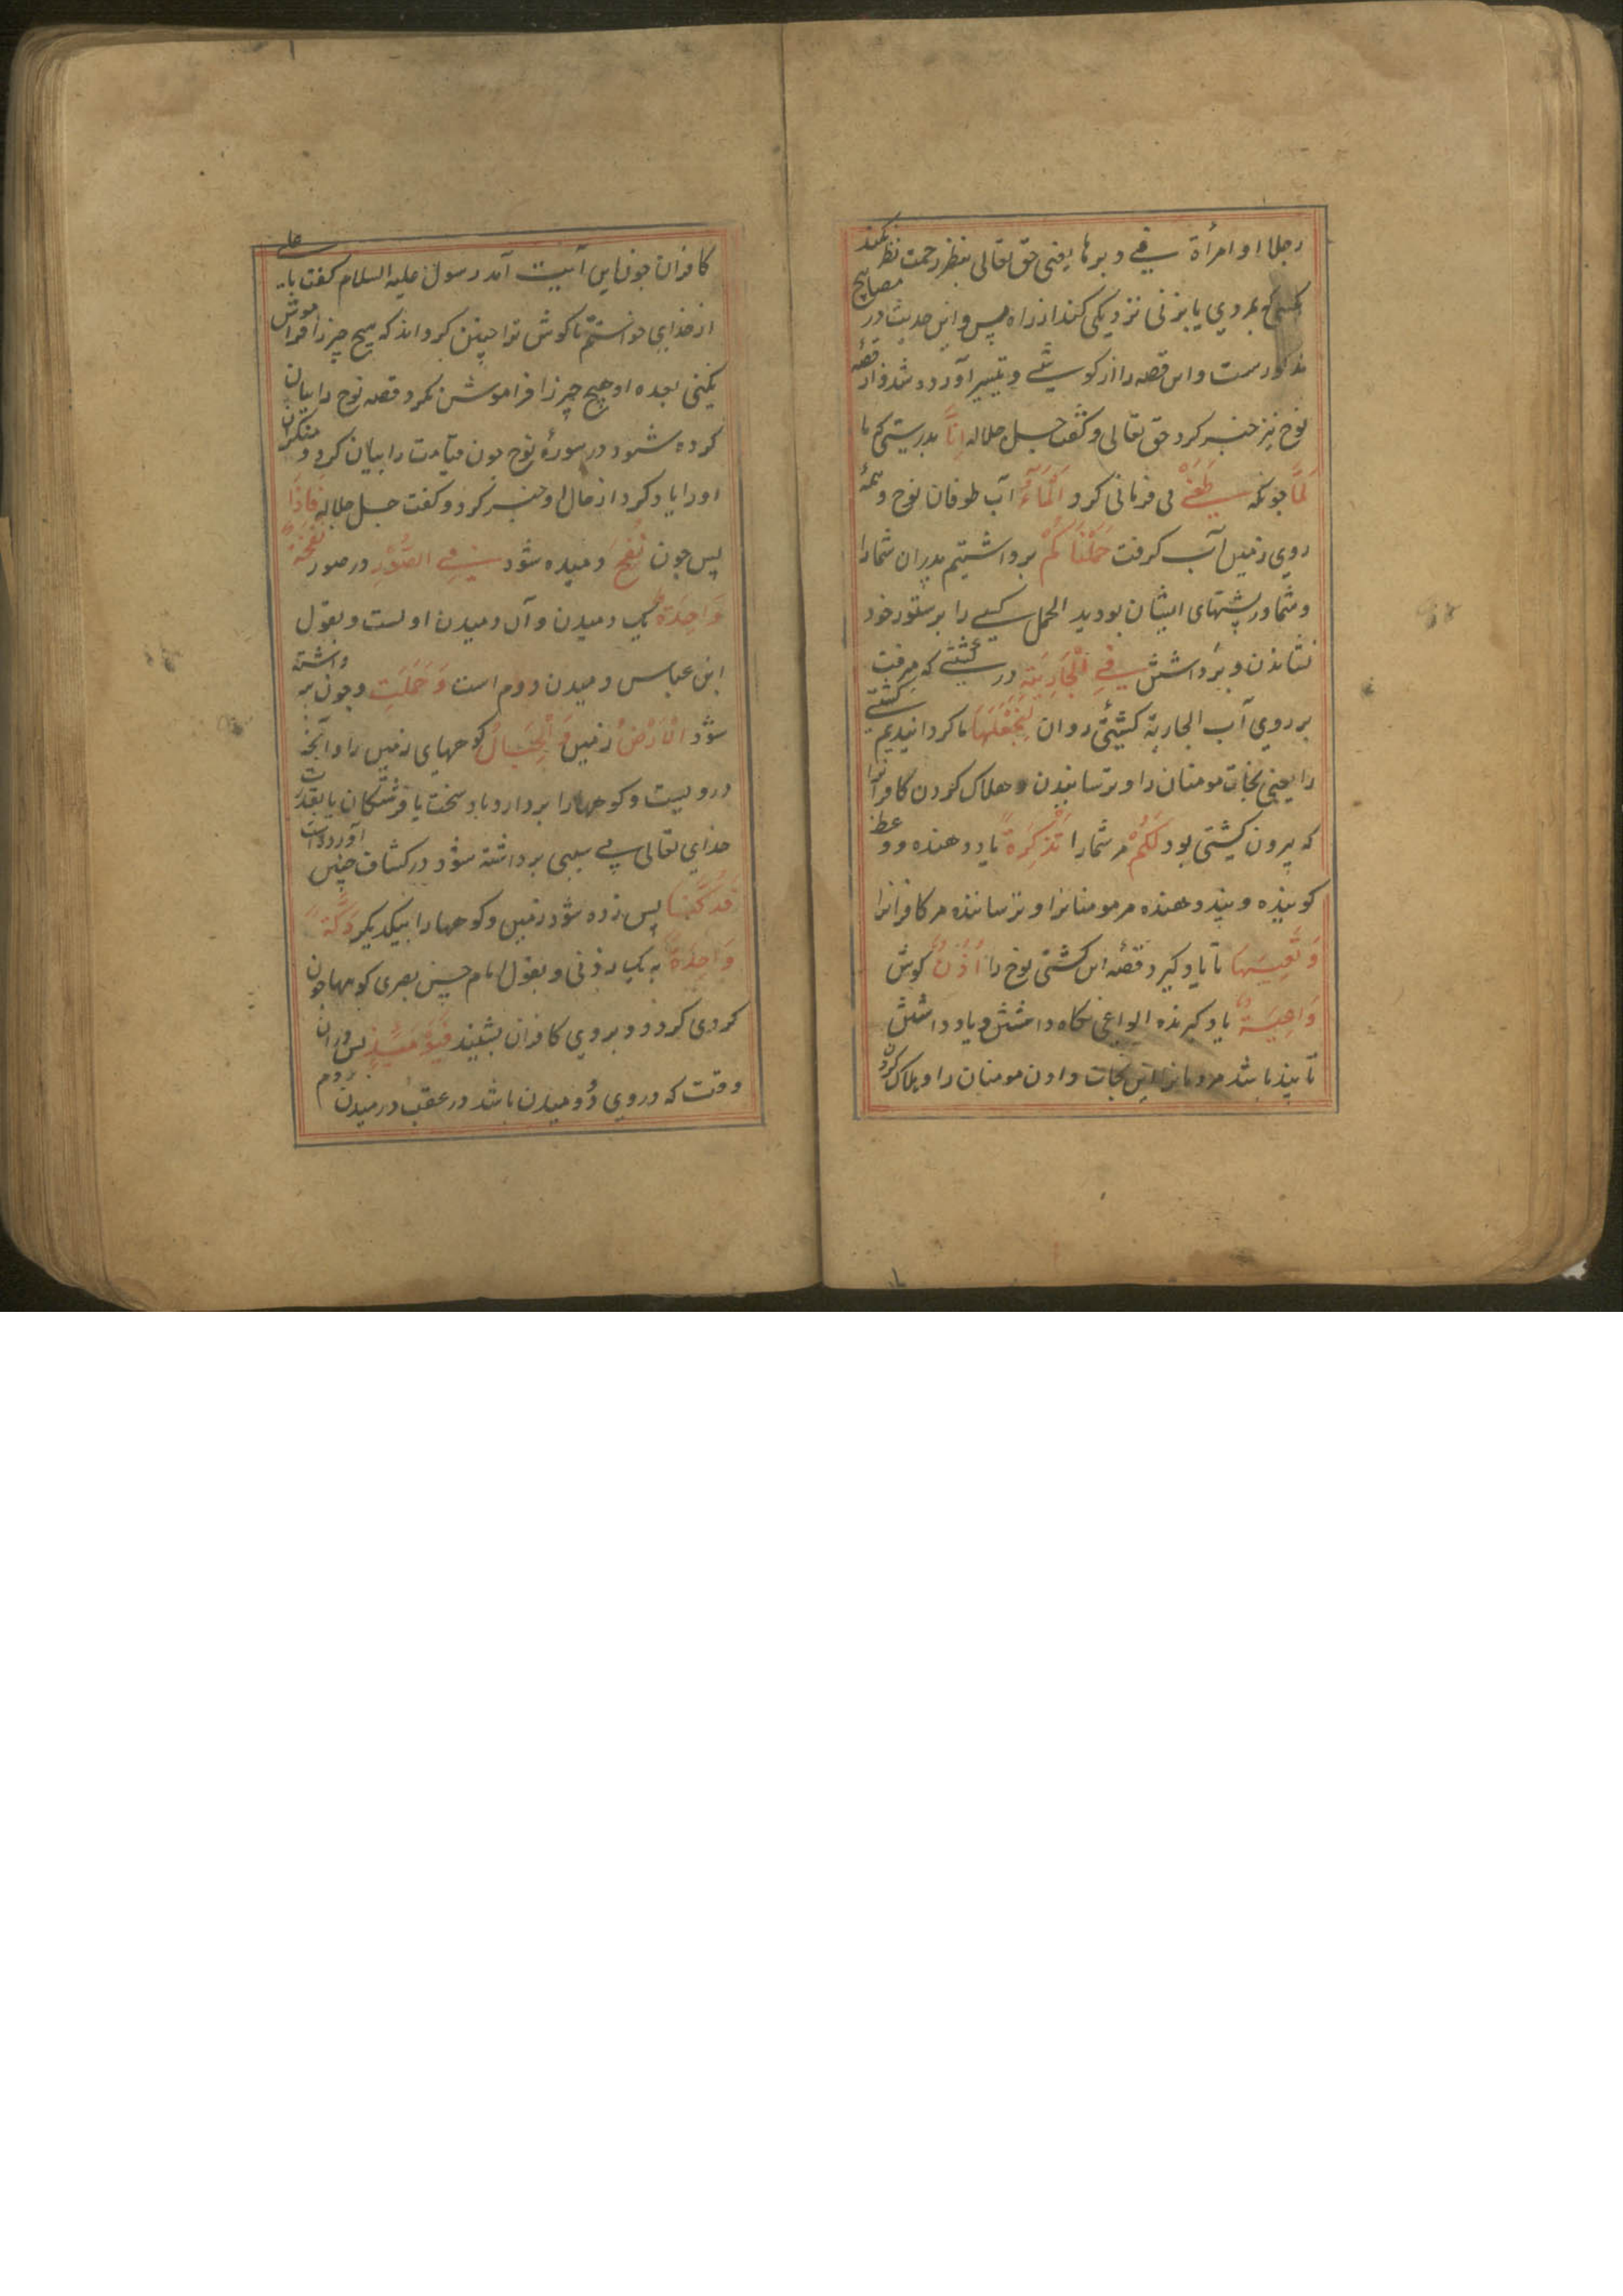 رجلا او امرأة في دبرها یعنی حق تعالی بنظر رحمت نظر نکند
کسی که بمردی یا بزنی نزدیکی کند از راه پس و این حدیث در مصابیح
مذکورست و این قصه را از کوشی و تیسیر آورده شد و از قصه
نوح نیز خبر کرد حق تعالی و گفت جل جلاله اِنَّا بدرستی که ما
لَمَّا چونکه طَغَى بی فرمانی کرد اَلْمَاءُ آب طوفان نوح و همه
روی زمین آب کرفت حَمَلْنَاكُمْ برداشتیم پدران شما را
و شما در پشتهای ایشان بودید الحمل کسی را بر ستور خود
نشاندن و برداشتن فِي الْجَارِيَةِ در کشتی که میرفت
بر روی آب الجاریة کشتی روان لِنَجْعَلَهَا تا کردانیدیم کشتی
را یعنی نجات مومنان را و ترسانیدن و هلاک کردن کافرانرا
که بیرون کشتی بود لَكُمْ مر شما را تَذْكِرَةً یاد دهنده و وعظ
کوینده و پند دهنده مر مومنانرا و ترساننده مر کافرانرا
وَتَعِيَهَا تا یاد کیرد قصه این کشتی نوح را اُذُنٌ کوش
وَاعِيَةٌ یاد کیرنده الواعی نکاه داشتن و یاد داشتن
تا پند باشد مردمانرا این نجات دادن مومنان را و هلاک کردن
کافران چون این آیت آمد رسول علیه السلام گفت یا علی
از خدای خواستم تا کوش ترا چنین کرداند که هیچ چیز را فراموش
نکنی بعده او هیچ چیز را فراموش نکرد و قصه نوح را بیان
کرده شود در سورۀ نوح چون قیامت را بیان کرد و منکران
او را یاد کرد از حال او خبر کرد و گفت جل جلاله فَاِذَا
پس چون نُفِخَ دمیده شود فِي الصُّوْرِ در صور نَفْخَةٌ
وَاحِدَةٌ یک دمیدن و آن دمیدن اولست و بقول
ابن عباس دمیدن دوم است وَحُمِلَتِ و چون برداشته
شود الْاَرْضُ زمین وَالْجِبَالُ کوههای زمین را و آنچه
دروست و کوهها را بردارد باد سخت یا فرشتکان یا بقدرت
خدای تعالی بی سببی برداشته شود در کشاف چنین آورده است
فَدُكَّتَا پس زده شود زمین و کوهها را بیکدیکر دَكَّةً
وَاحِدَةً به یکبار زدنی و بقول امام حسن بصری کوهها چون
کردی کردد و بر روی کافران بنشیند فَيَوْمَئِذٍ پس در آن
وقت که در وی دو دمیدن باشد در عقب در میدن دوم